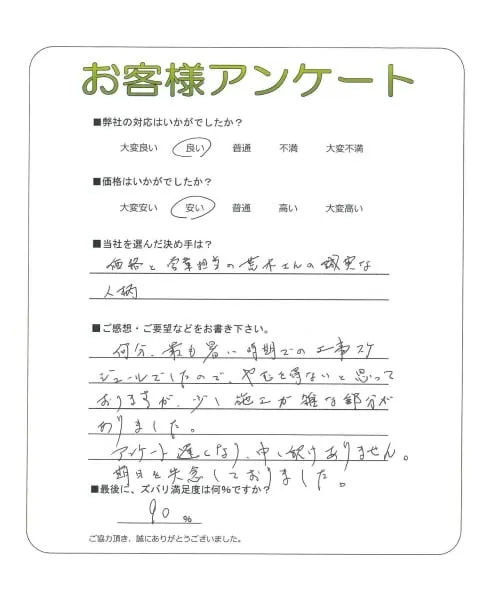 お客様アンケート
■弊社の対応はいかがでしたか？
大変良い 良い 普通 不満 大変不満
■価格はいかがでしたか？
大変安い 安い 普通 高い 大変高い
■当社を選んだ決め手は？
価格と営業担当の荒木さんの誠実な
人柄
■ご感想・ご要望などをお書き下さい。
何分、最も暑い時期での工事スケ
ジュールでしたので、やむを得ないと思って
おりますが、少し施工が雑な部分が
ありました。
アンケート遅くなり、申し訳けありません。
期日を失念しておりました。
■最後に、ズバリ満足度は何%ですか？
90 %
ご協力頂き、誠にありがとうございました。